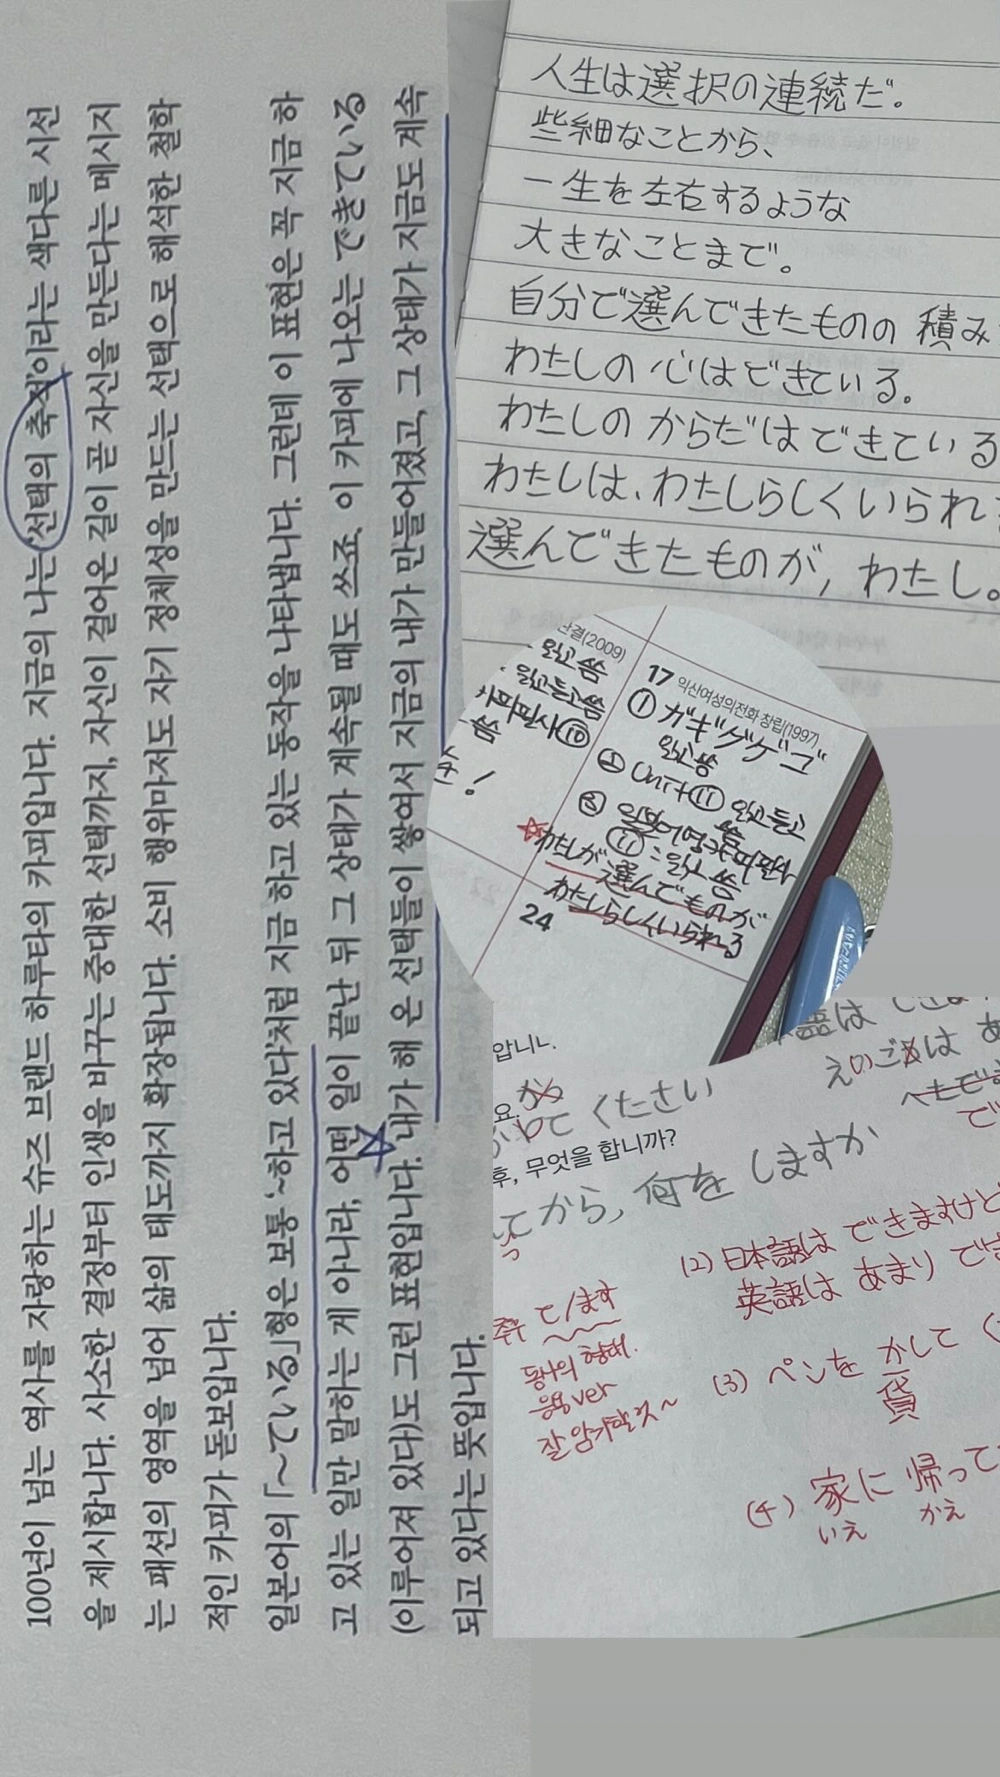 100년이 넘는 역사를 자랑하는 슈즈 브랜드 하루타의 카피입니다. 지금의 나는 '선택의 축적'이라는 색다른 시선
을 제시합니다. 사소한 결정부터 인생을 바꾸는 중대한 선택까지, 자신이 걸어온 길이 곧 자신을 만든다는 메시지
는 패션의 영역을 넘어 삶의 태도까지 확장됩니다. 소비 행위마저도 자기 정체성을 만드는 선택으로 해석한 철학
적인 카피가 돋보입니다.
일본어의 「~ている」형은 보통 '~하고 있다'처럼 지금 하고 있는 동작을 나타냅니다. 그런데 이 표현은 꼭 지금 하
고 있는 일만 말하는 게 아니라, 어떤 일이 끝난 뒤 그 상태가 계속될 때도 쓰죠. 이 카피에 나오는 できている
(이루어져 있다)도 그런 표현입니다. 내가 해 온 선택들이 쌓여서 지금의 내가 만들어졌고, 그 상태가 지금도 계속
되고 있다는 뜻입니다.
人生は選択の連続だ。
些細なことから、
一生を左右するような
大きなことまで。
自分で選んできたものの積み
わたしの心はできている。
わたしのからだはできている
わたしは、わたしらしくいられ
選んできたものが、わたし。
결(2009)
읽고 씀
읽고듣고씀
카피필사⑩
씀
!
17 익산여성의전화 창립(1997)
① ガギグゲゴ
읽고 씀
② Unit⑪ 읽고듣고
씀
③ 일본어명카피필사
⑪ : 읽고 씀
わたしが選んでものが
わたしらしくいられる
24
압니
요.
てください
후, 무엇을 합니까?
てから, 何を しますか
っ
語は
えいごは あ
で
(2) 日本語は できますけど
英語は あまり でき
(3) ペンを かして く
貸
(4) 家に 帰って
いえ かえ
て/ます
동사의 형태.
응용ver
잘 암기하기~